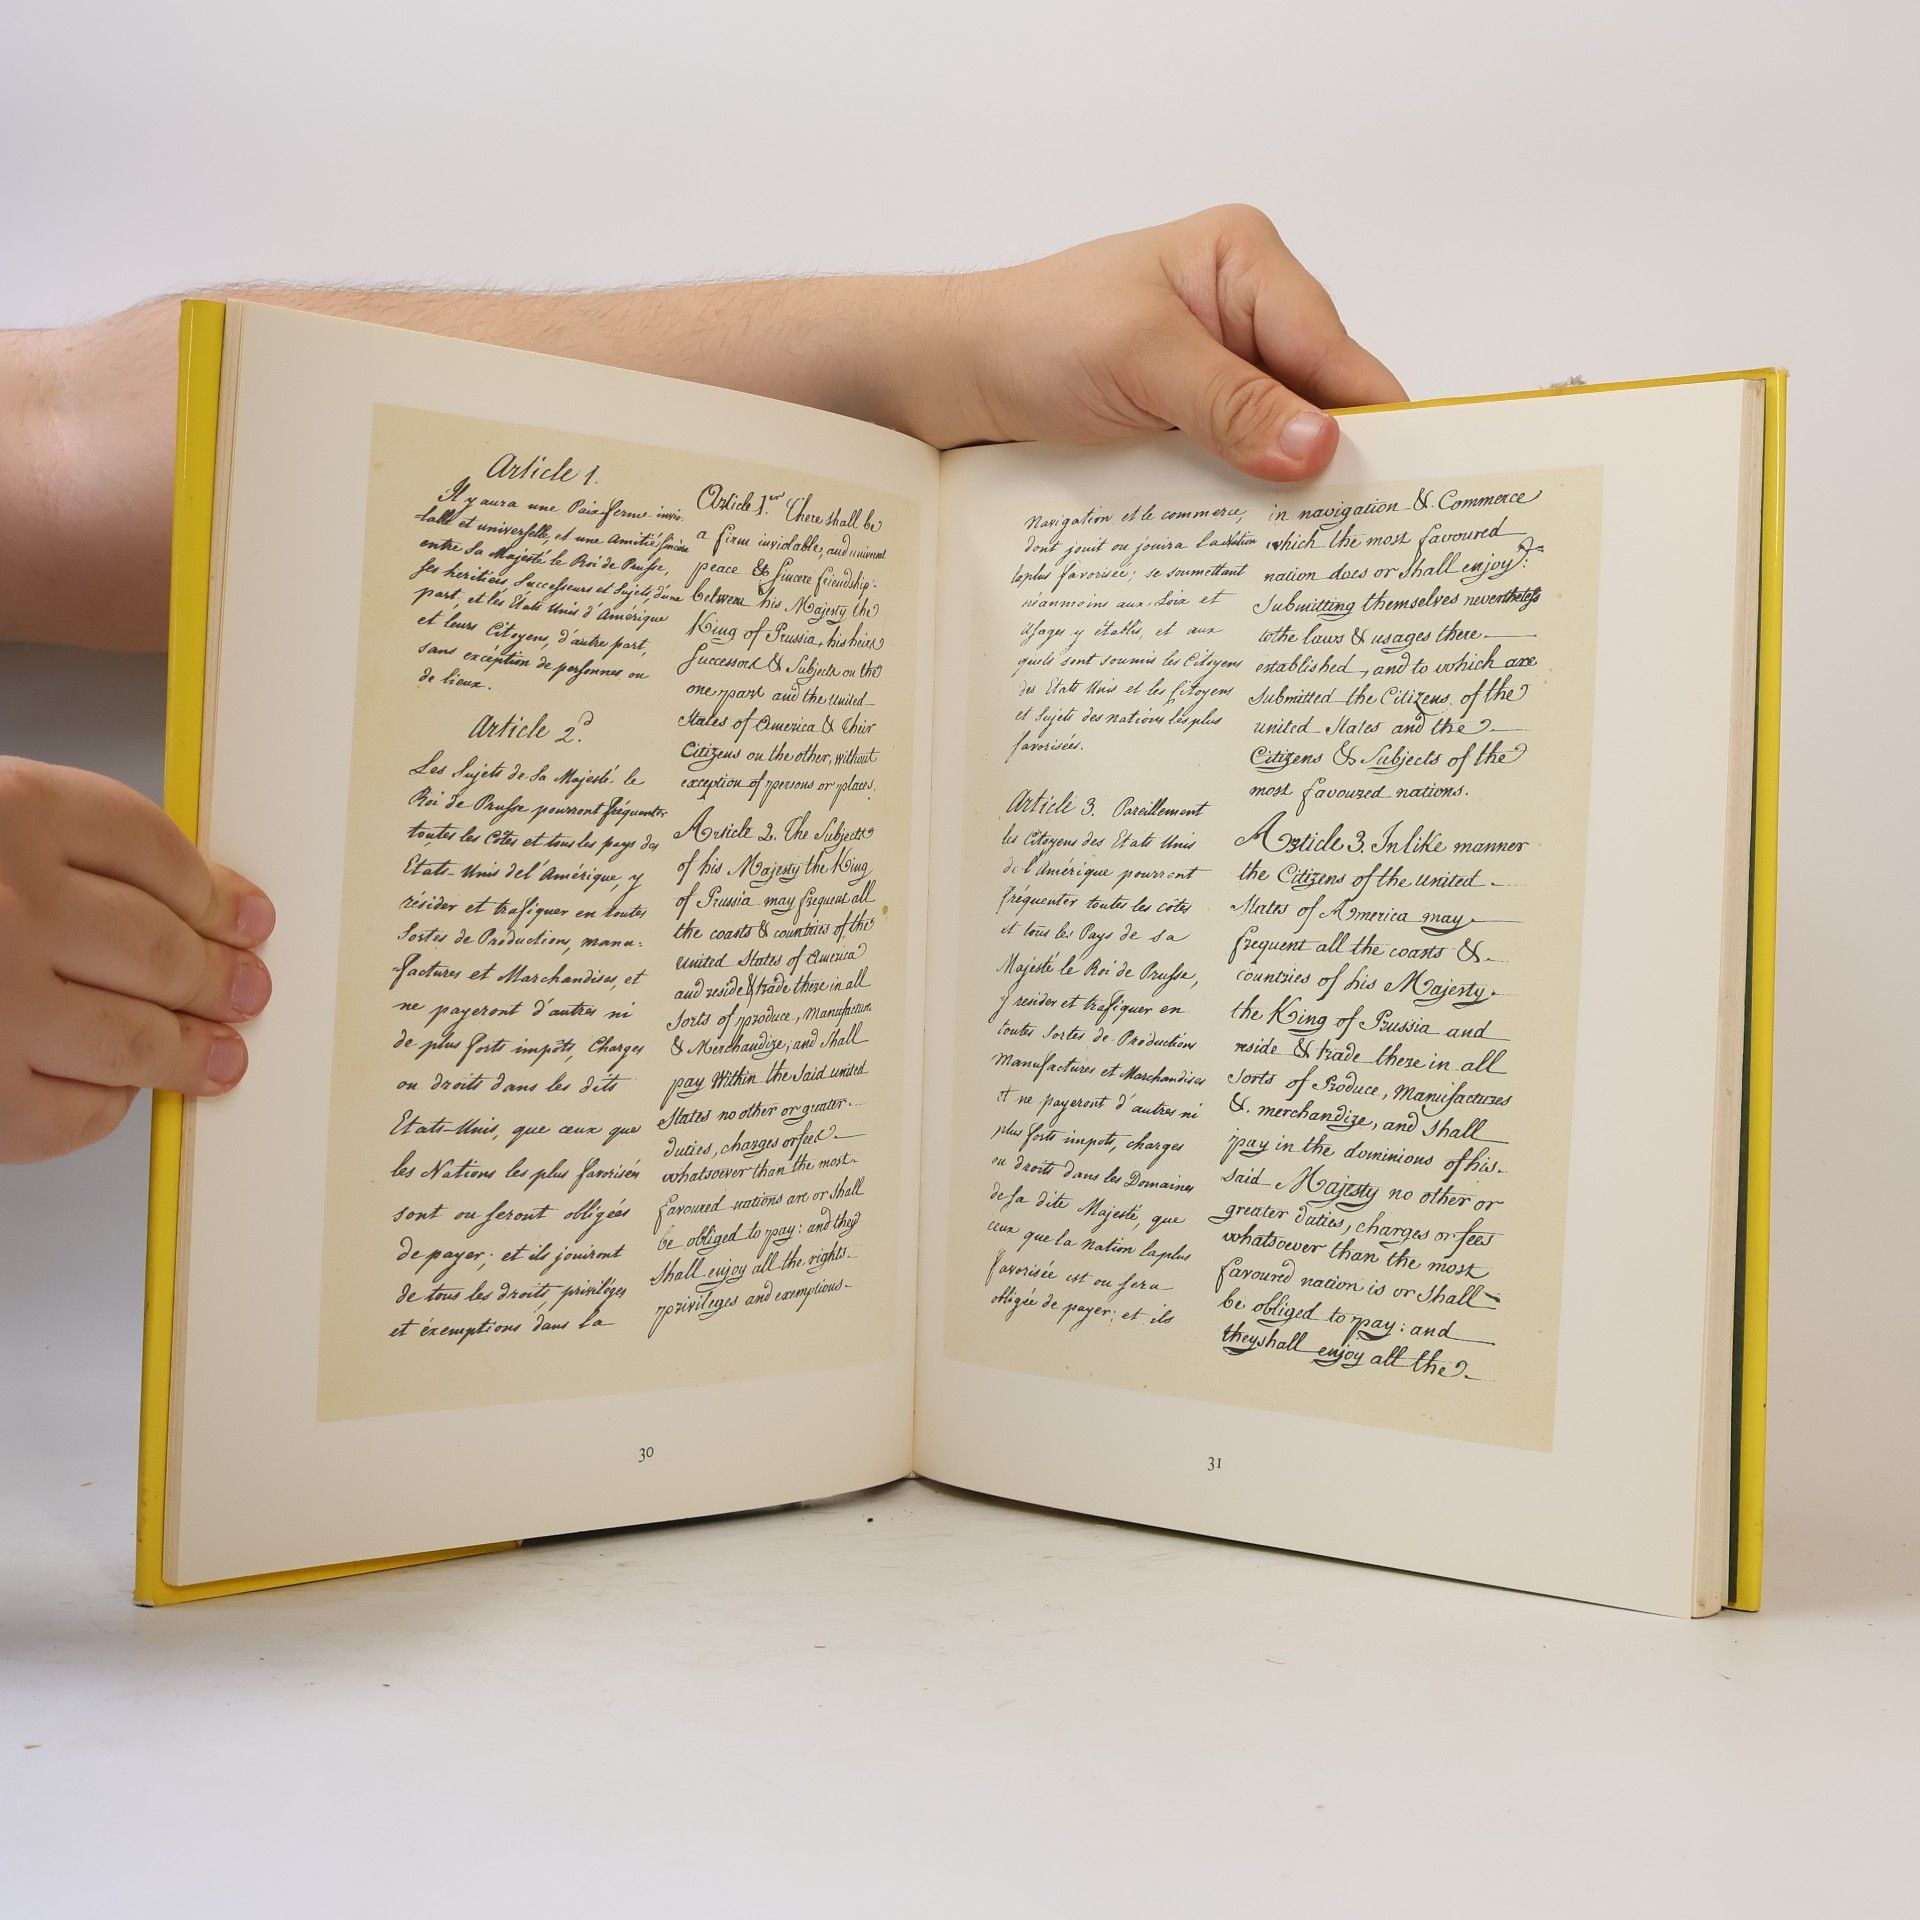 Article 1.
Il y aura une Paix ferme invio-
lable et universelle, et une Amitié sincère
entre Sa Majesté le Roi de Prusse,
ses heritiers, Successeurs et Sujets, d'une
part, et les Etats Unis d'Amérique
et leurs Citoyens, d'autre part,
sans exception de personnes ou
de lieux.
Article 2d.
Les Sujets de Sa Majesté le
Roi de Prusse pourront fréquenter
toutes les Côtes et tous les pays des
Etats-Unis de l'Amérique, y
résider et trafiquer en toutes
Sortes de Productions, manu=
factures et Marchandises, et
ne payeront d'autres ni
de plus forts impôts, Charges
ou droits dans les dits
Etats-Unis, que ceux que
les Nations les plus favorisées
sont ou seront obligées
de payer; et ils jouiront
de tous les droits, privilèges
et éxemptions dans la
Article 1er. There shall be
a firm inviolable, and universal
peace & sincere friendship
between his Majesty the
King of Prussia, his heirs
successors & Subjects on the
one part and the united
States of America & their
Citizens on the other, without
exception of persons or places.
Article 2. The Subjects
of his Majesty the King
of Prussia may frequent all
the coasts & countries of the
united States of America
and reside & trade there in all
sorts of produce, Manufactures
& Merchandize, and shall
pay Within the said united
States no other or greater
duties, charges or fees
whatsoever than the most
favoured nations are or shall
be obliged to pay: and they
shall enjoy all the rights
privileges and exemptions
30
Navigation et le commerce,
dont jouit ou jouira la Nation
la plus favorisée; se soumettant
néanmoins aux Loix et
Usages y établis, et aux
quels sont soumis les Citoyens
des Etats Unis et les Citoyens
et Sujets des nations les plus
favorisées.
Article 3. Pareillement
les Citoyens des Etats Unis
de l'Amérique pourront
fréquenter toutes les côtes
et tous les Pays de Sa
Majesté le Roi de Prusse,
y resider et trafiquer en
toutes Sortes de Productions
Manufactures et Marchandises
et ne payeront d'autres ni
plus forts impots, charges
ou droits dans les Domaines
de sa dite Majesté, que
ceux que la Nation la plus
favorisée est ou sera
obligée de payer; et ils
in navigation & Commerce
which the most favoured
nation does or shall enjoy:
submitting themselves nevertheless
to the laws & usages there
established, and to which are
submitted the Citizens of the
united States and the
Citizens & Subjects of the
most favoured nations.
Article 3. In like manner
the Citizens of the united
States of America may
frequent all the coasts &
countries of his Majesty
the King of Prussia and
reside & trade there in all
sorts of Produce, Manufactures
& merchandize, and shall
pay in the dominions of his
said Majesty no other or
greater duties, charges or fees
whatsoever than the most
favoured nation is or shall
be obliged to pay: and
they shall enjoy all the
31